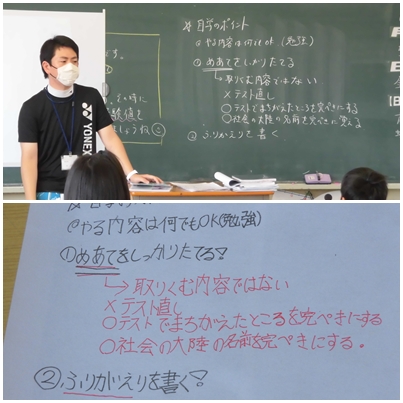 ☆自学のポイント
◎やる内容は何でもOK(勉強)
①めあてをしっかりたてる
↳取りくむ内容ではない
×テスト直し
○テストでまちがえたところを完ぺきにする
○社会の大陸の名前を完ぺきに覚える
②ふりかえりを書く
す。
その時に
YONEX
◎やる内容は何でもOK(勉強)
①めあてをしっかりたてる!
↳取りくむ内容ではない
×テスト直し
○テストでまちがえたところを完ぺきにする
○社会の大陸の名前を完ぺきにする。
②ふりがえりを書く!